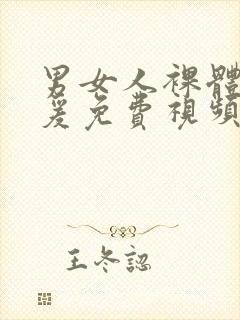 男女人裸體
爰免費視頻
王冬認